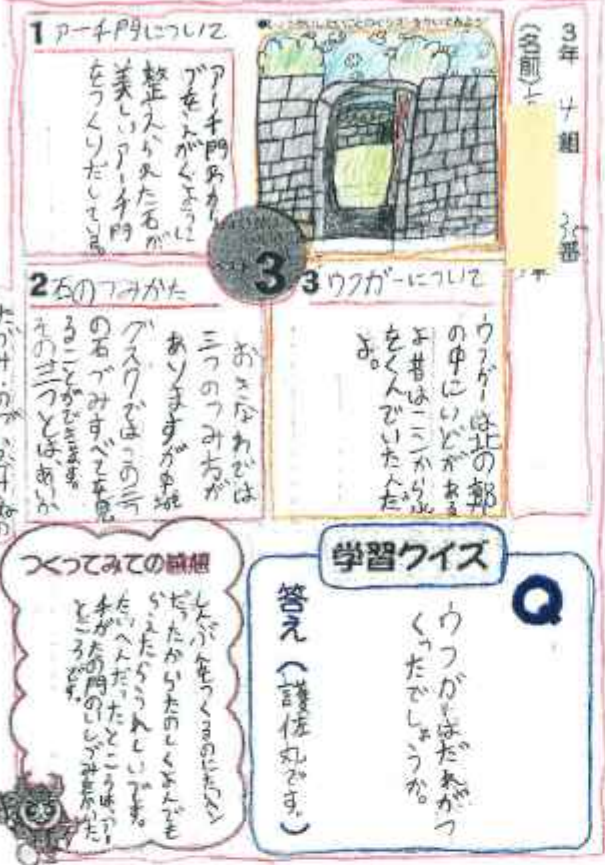 3年 4組 35番
(名前)
1 アーチ門について
アーチ門はカー
ブをえがくように
整えられた石が
美しいアーチ門
をつくりだしている。
3
2 石のつみかた
おきなわでは
三つのつみ方が
ありますが中城
グスクではこの三つ
の石づみすべてを見
ることができます。
その三つとは、あいか
たづみ・のづ
3 ウフガーについて
ウフガーは北の郭
の中にいどがある
よ昔はここから水
をくんでいたんだ
よ。
学習クイズ
Q
ウフガーはだれがつ
くったでしょうか。
答え(護佐丸です。)
つくってみての感想
しんぶんをつくるのにたいへん
だったからたのしくよんでも
らえたらうれしいです。
たいへんだったところは、アー
チがたの門のいしづみをかいた
ところです。